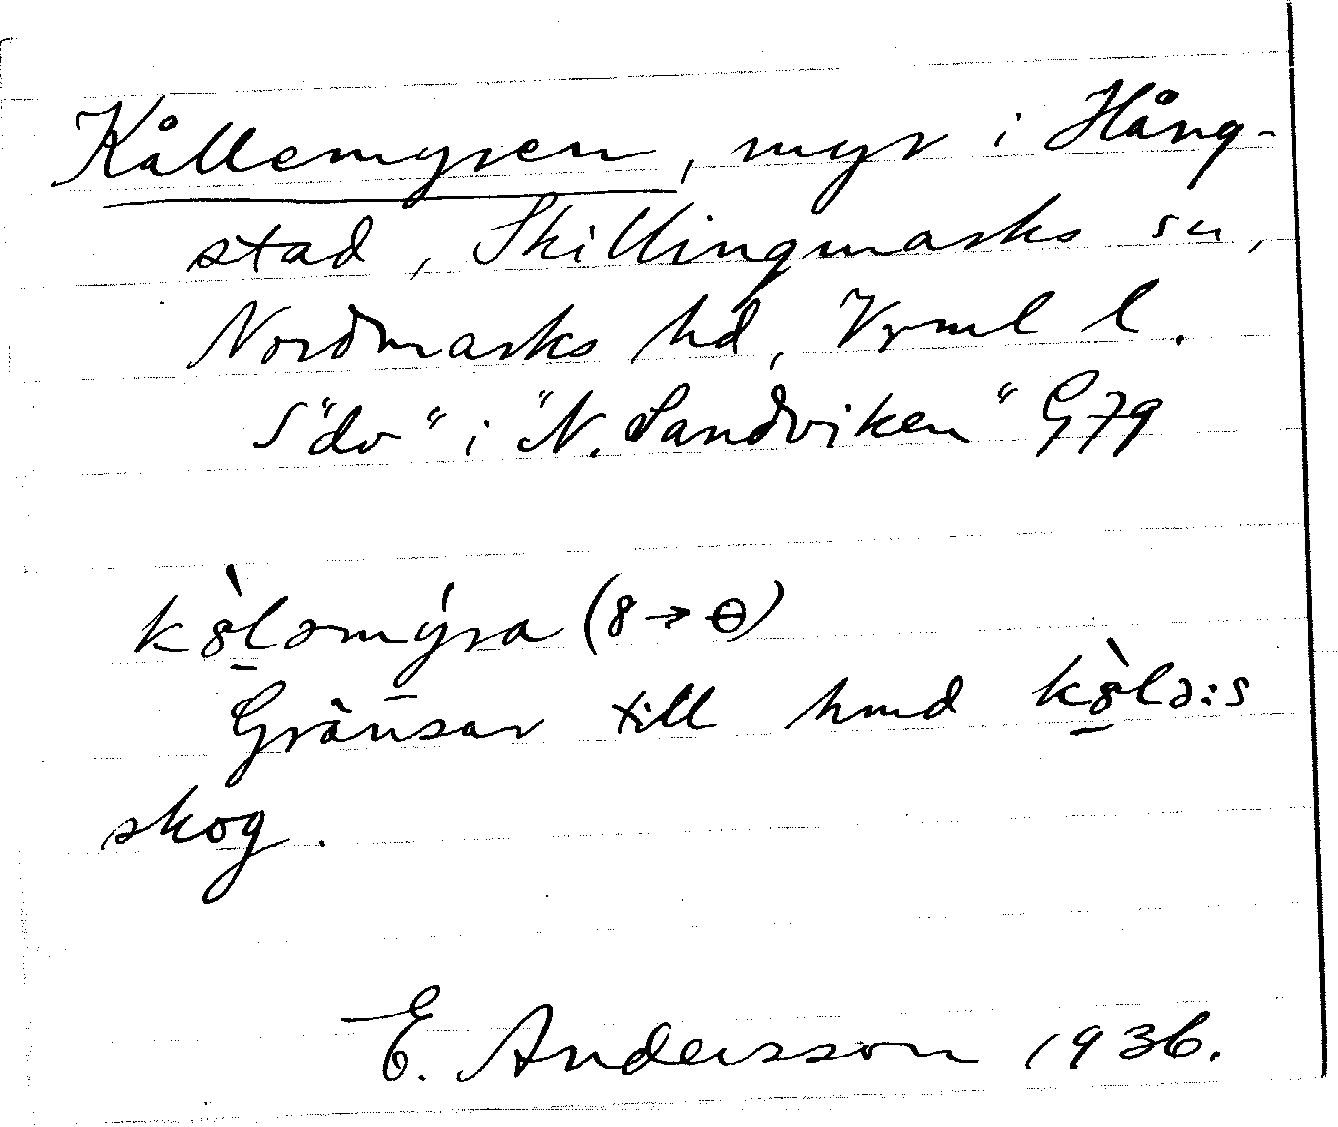 Kållemyren, myr i Hång-
stad, Skillingmarks sn,
Nordmarks hd, Vrml l.
S "dv" i "N. Sandviken" G79
kȣ̀lǝmýra (ȣ→ɵ)
Gränsar till hmd kȣ̀lǝ:s
skog.
E. Andersson 1936.